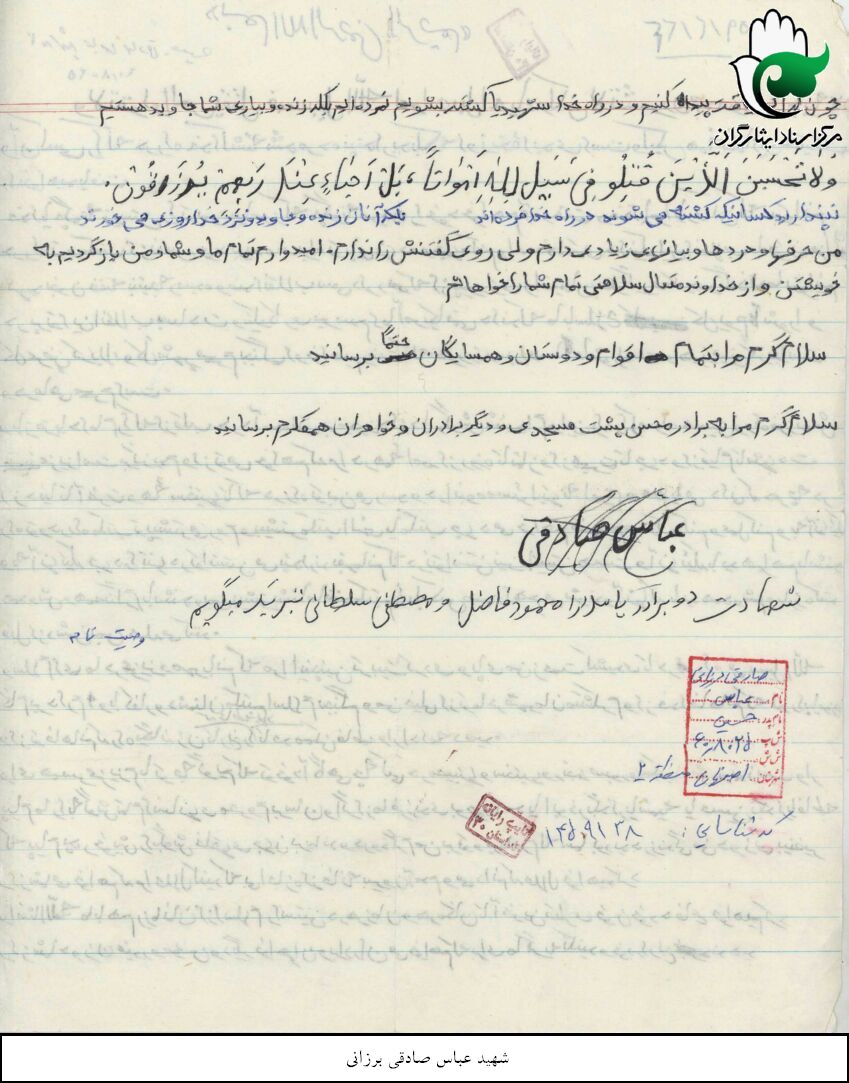 مرکز اسناد ایثارگران
پیدا کنیم و در راه خدا شهید یا کشته بشویم نمرده ایم بلکه زنده و بیاری شما جاوید هستیم
وَلا تَحْسَبَنَ الَّذینَ قُتِلُو فِی سَبیلِ اللهِ اَمْواتاً، بَلْ اَحْیاءٍ عِنْدَ رَبِهِمْ یُرْزَقُونْ.
نپندارید کسانیکه کشته می شوند در راه خدا مرده اند بلکه آنان زنده و جاوید و نزد خدا روزی می خورند
من حرفها و دردها و بیانهای زیادی دارم ولی روی گفتنش را ندارم. امیدوارم تمام ما و شما و من باز گردیم به
خویشتن و از خداوند متعال سلامتی تمام شما را خواهانم
سلام گرم مرا بتمام اقوام و دوستان و همسایگان حتماً برسانید
سلام گرم مرا به برادر محسن پشت مسجدی و دیگر برادران و خواهران همفکرم برسانید
عباس صادقی
شهادت دو برادر پاسدار محمود فاضل و مصطفی سلطانی تبریک میگویم
وصیت نامه
صادقی برزانی
نام: عباس
نام پدر: حسین
ش پ:
ش ش:
شهرستان: اصفهان منطقه ۲
کد شناسایی: ۱۴۵۹۱۳۸
شهید عباس صادقی برزانی